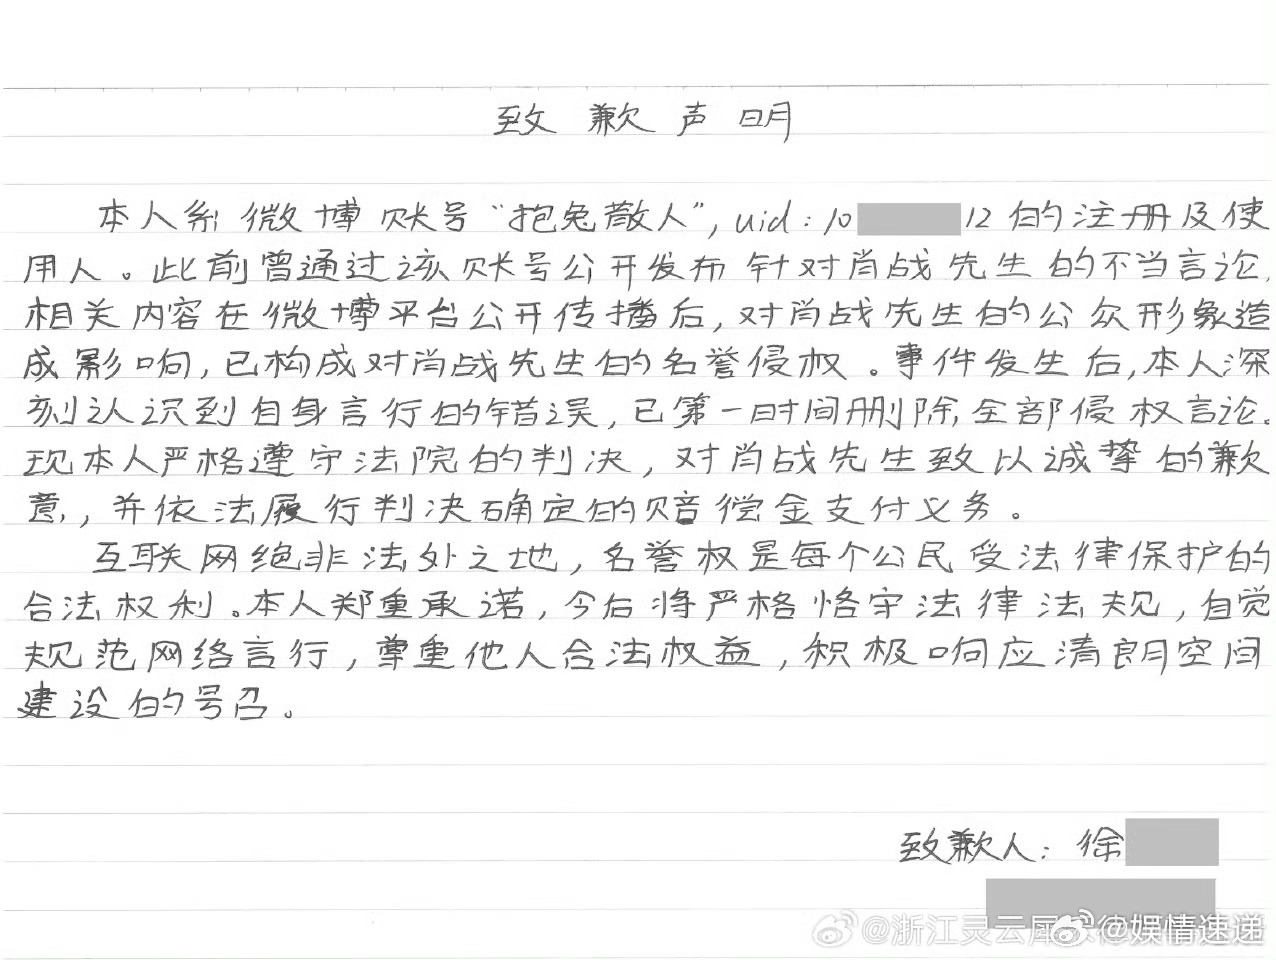 致歉声明
本人系微博账号“抱兔散人”，uid：10 12的注册及使
用人。此前曾通过该账号公开发布针对肖战先生的不当言论，
相关内容在微博平台公开传播后，对肖战先生的公众形象造
成影响，已构成对肖战先生的名誉侵权。事件发生后，本人深
刻认识到自身言行的错误，已第一时间删除全部侵权言论。
现本人严格遵守法院的判决，对肖战先生致以诚挚的歉
意，并依法履行判决确定的赔偿金支付义务。
互联网绝非法外之地，名誉权是每个公民受法律保护的
合法权利。本人郑重承诺，今后将严格恪守法律法规，自觉
规范网络言行，尊重他人合法权益，积极响应清朗空间
建设的号召。
致歉人：徐
@浙江灵云犀 @娱情速递